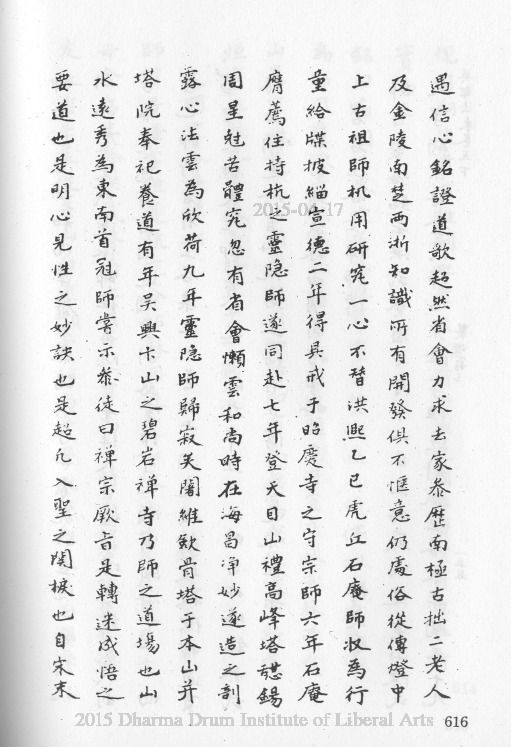 遇信心銘證道歌超然省會力求去家叅歷南極古拙二老人
及金陵南芝兩浙知識所有開發俱不愜意仍處俗從傳燈中
上古祖師机用研究一心不替洪熙乙巳虎丘石庵師收為行
童給牒披緇宣德二年得具戒于昭慶寺之守宗師六年石庵
膺薦住持杭之靈隐師遂同赴七年登天目山禮高峰塔憇錫
周星尅苦體究忽有省會懶雲和尚時在海昌淨妙遂造之剖
露心法雲為欣荷九年靈隐師歸寂矣闍維歛骨塔于本山并
塔院奉祀養道有年吴興卞山之碧岩禅寺乃師之道場也山
水遠秀為東南首冠師嘗示叅徒曰禅宗厥旨是轉迷成悟之
要道也是明心見性之妙訣也是超凡入聖之関棙也自宋末
2015-04-17
2015 Dharma Drum Institute of Liberal Arts
616